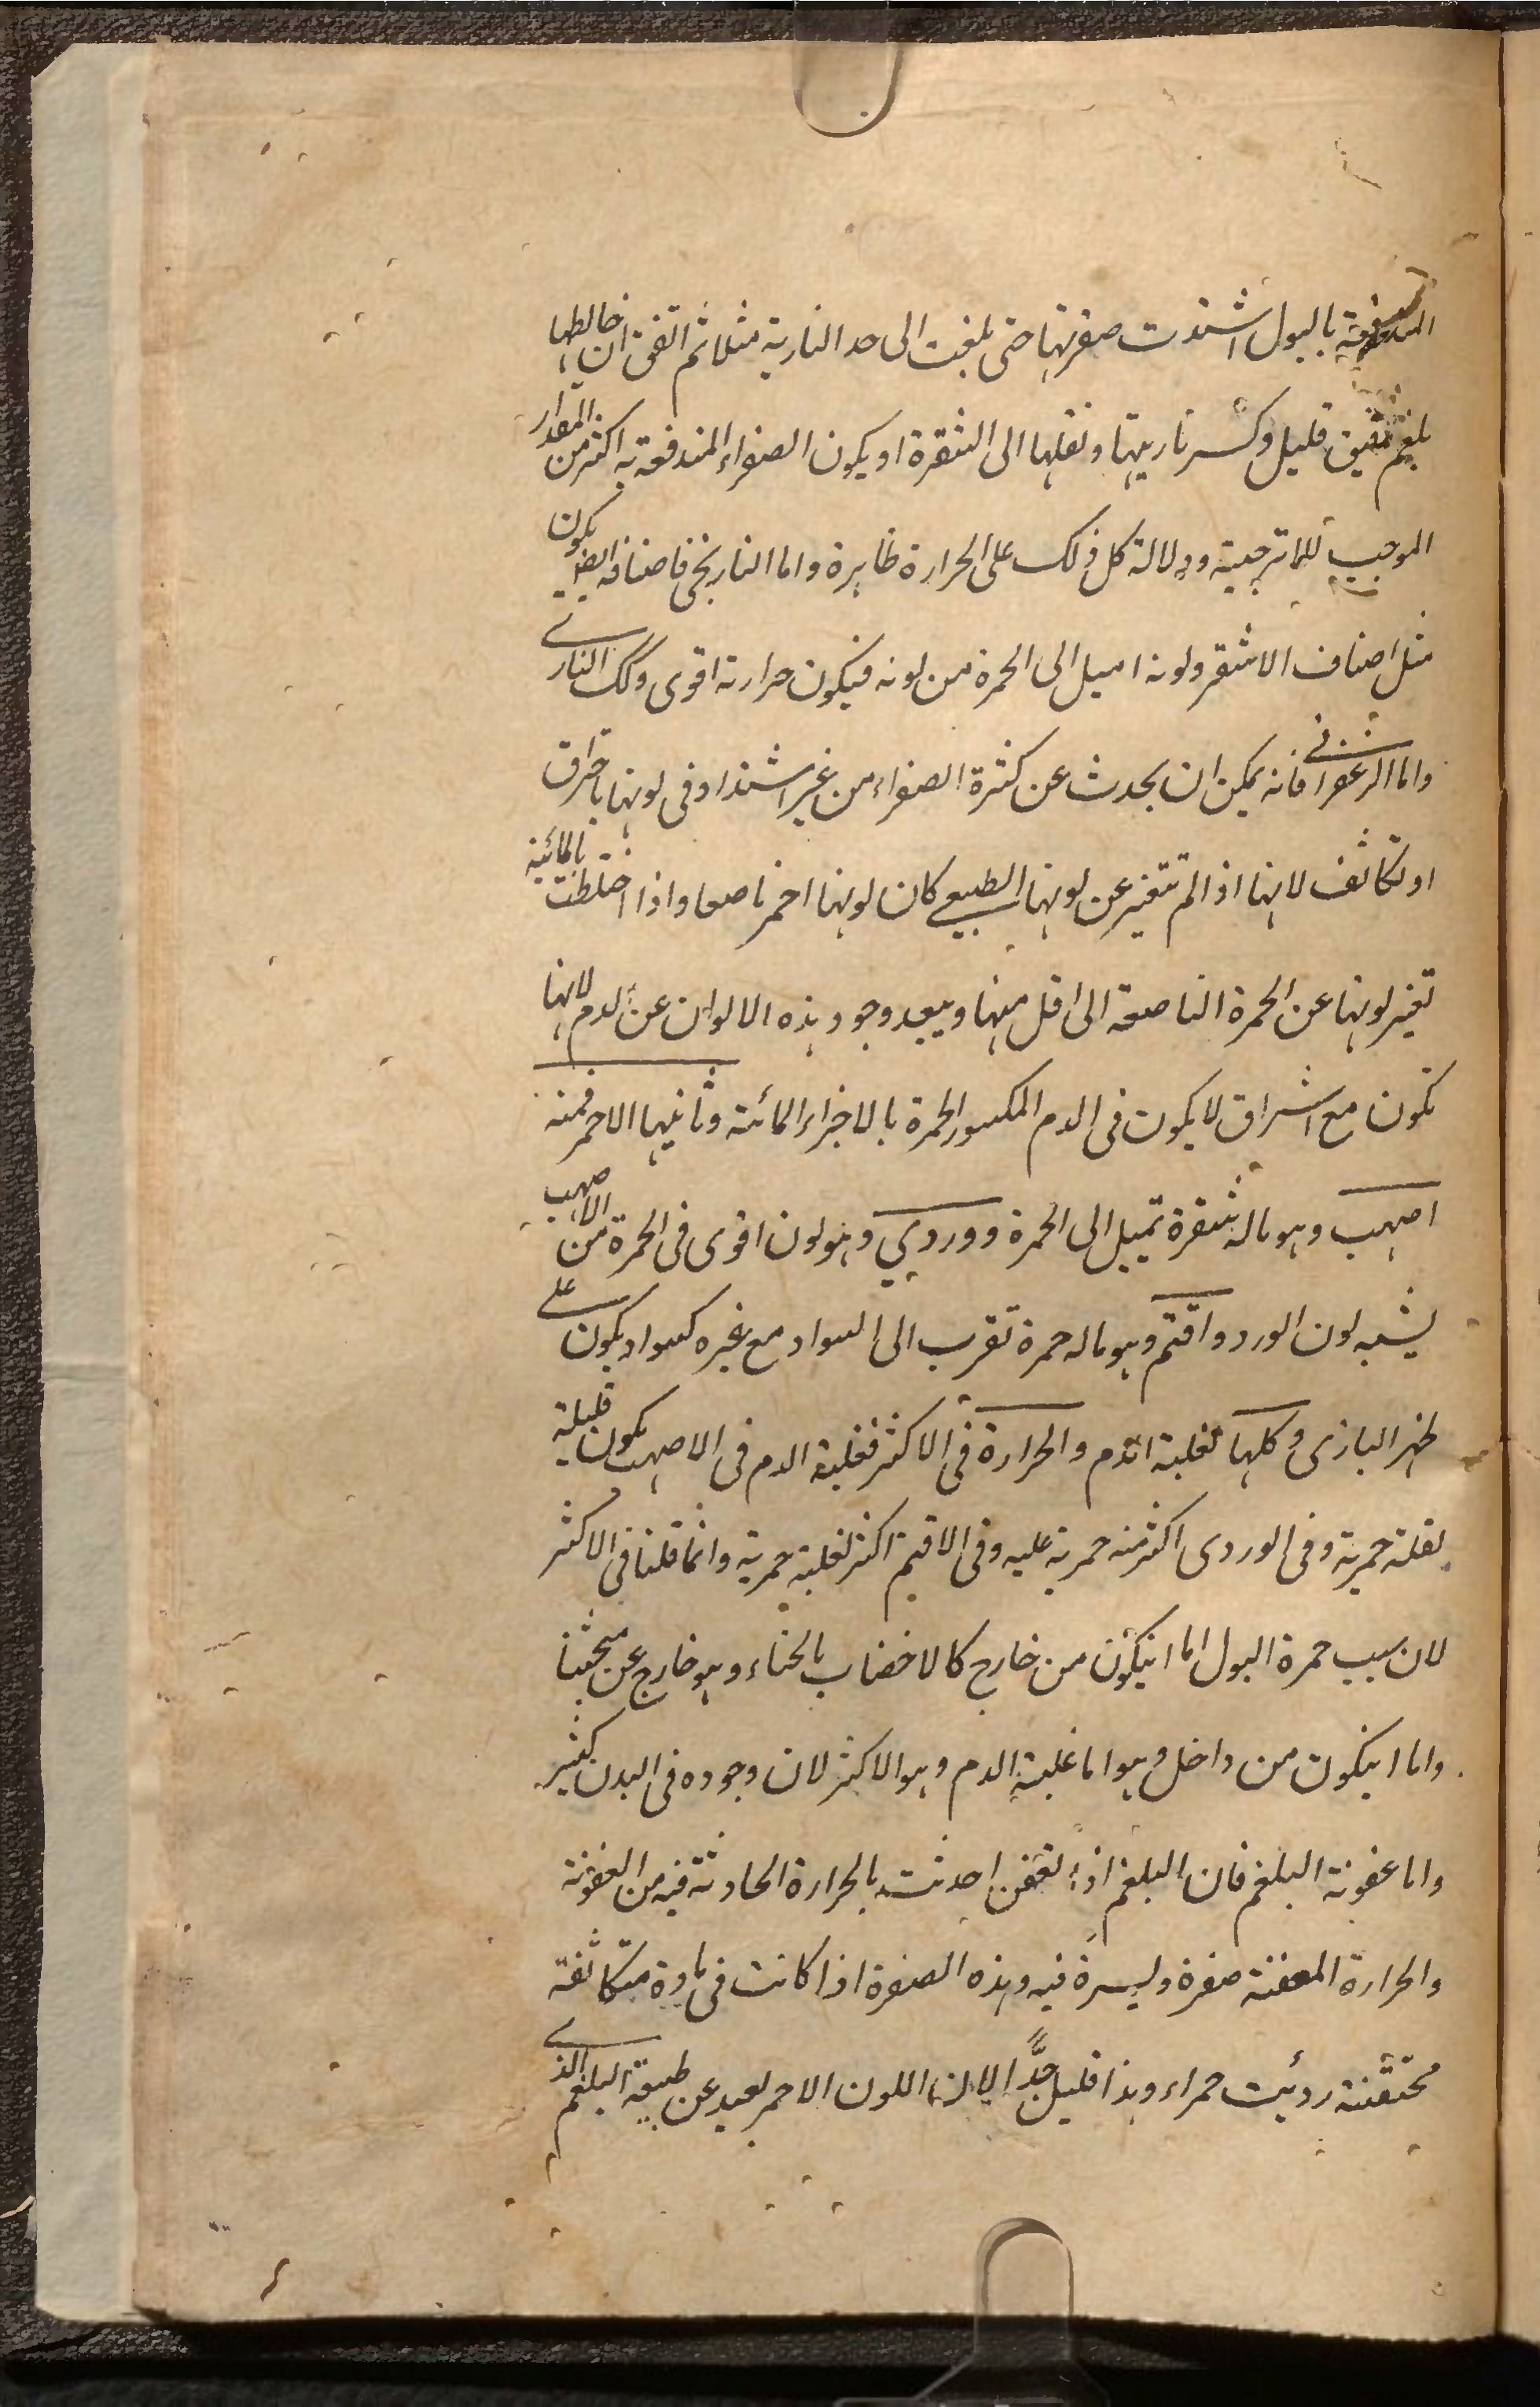 المندفعة بالبول اشتدت صفرتها حتى بلغت الى حد النارية مثلا ثم اتفق ان خالطها
بلغم رقيق قليل وكسر ناريتها ونقلها الى الشقرة او يكون الصفراء المندفعة به اكثر من المقدار
الموجب للاترجية ودلالة كل ذلك على الحرارة ظاهرة واما النارنجى فاصنافه ايضا يكون
مثل اصناف الاشقر ولونه اميل الى الحمرة من لونه فيكون حرارته اقوى وكك النارى
واما الزعفرانى فانه يمكن ان يحدث عن كثرة الصفراء من غير اشتداد فى لونها باحتراق
او تكاثف لانها اذا لم تتغير عن لونها الطبيعى كان لونها احمر ناصعا واذا اختلطت بالمائية
تغير لونها عن الحمرة الناصعة الى اقل منها ويبعد وجود هذه الالوان عن الدم لانها
تكون مع اشراق لا يكون فى الدم المكسور الحمرة بالاجزاء المائية وثانيها الاحمر فمنه
اصهب وهو ماله شقرة تميل الى الحمرة ووردي وهو لون اقوى فى الحمرة من الاصهب
يشبه لون الورد واقتم وهو ماله حمرة تقرب الى السواد مع غبرة كسواد يكون على
ظهر البازى وكلها لغلبة الدم والحرارة فى الاكثر فغلبة الدم فى الاصهب يكون قليلة
لقلة حمرته وفى الوردى اكثر منه حمرته عليه وفى الاقتم اكثر لغلبة حمرته وانما قلنا فى الاكثر
لان سبب حمرة البول اما انيكون من خارج كالاخضاب بالحناء وهو خارج عن مبحثنا
واما انيكون من داخل وهو اما غلبة الدم وهو الاكثر لان وجوده فى البدن كثير
واما عفونة البلغم فان البلغم اذا تعفن احدثت بالحرارة الحادثة فيه من العفونة
والحرارة المعفنة صفرة وليسرة فيه وهذه الصفرة اذا كانت فى مادة متكاثفة
محتقنة رديت حمراء وهذا قليل جدًّا لان اللون الاحمر بعيد عن طبيعة البلغم الذى